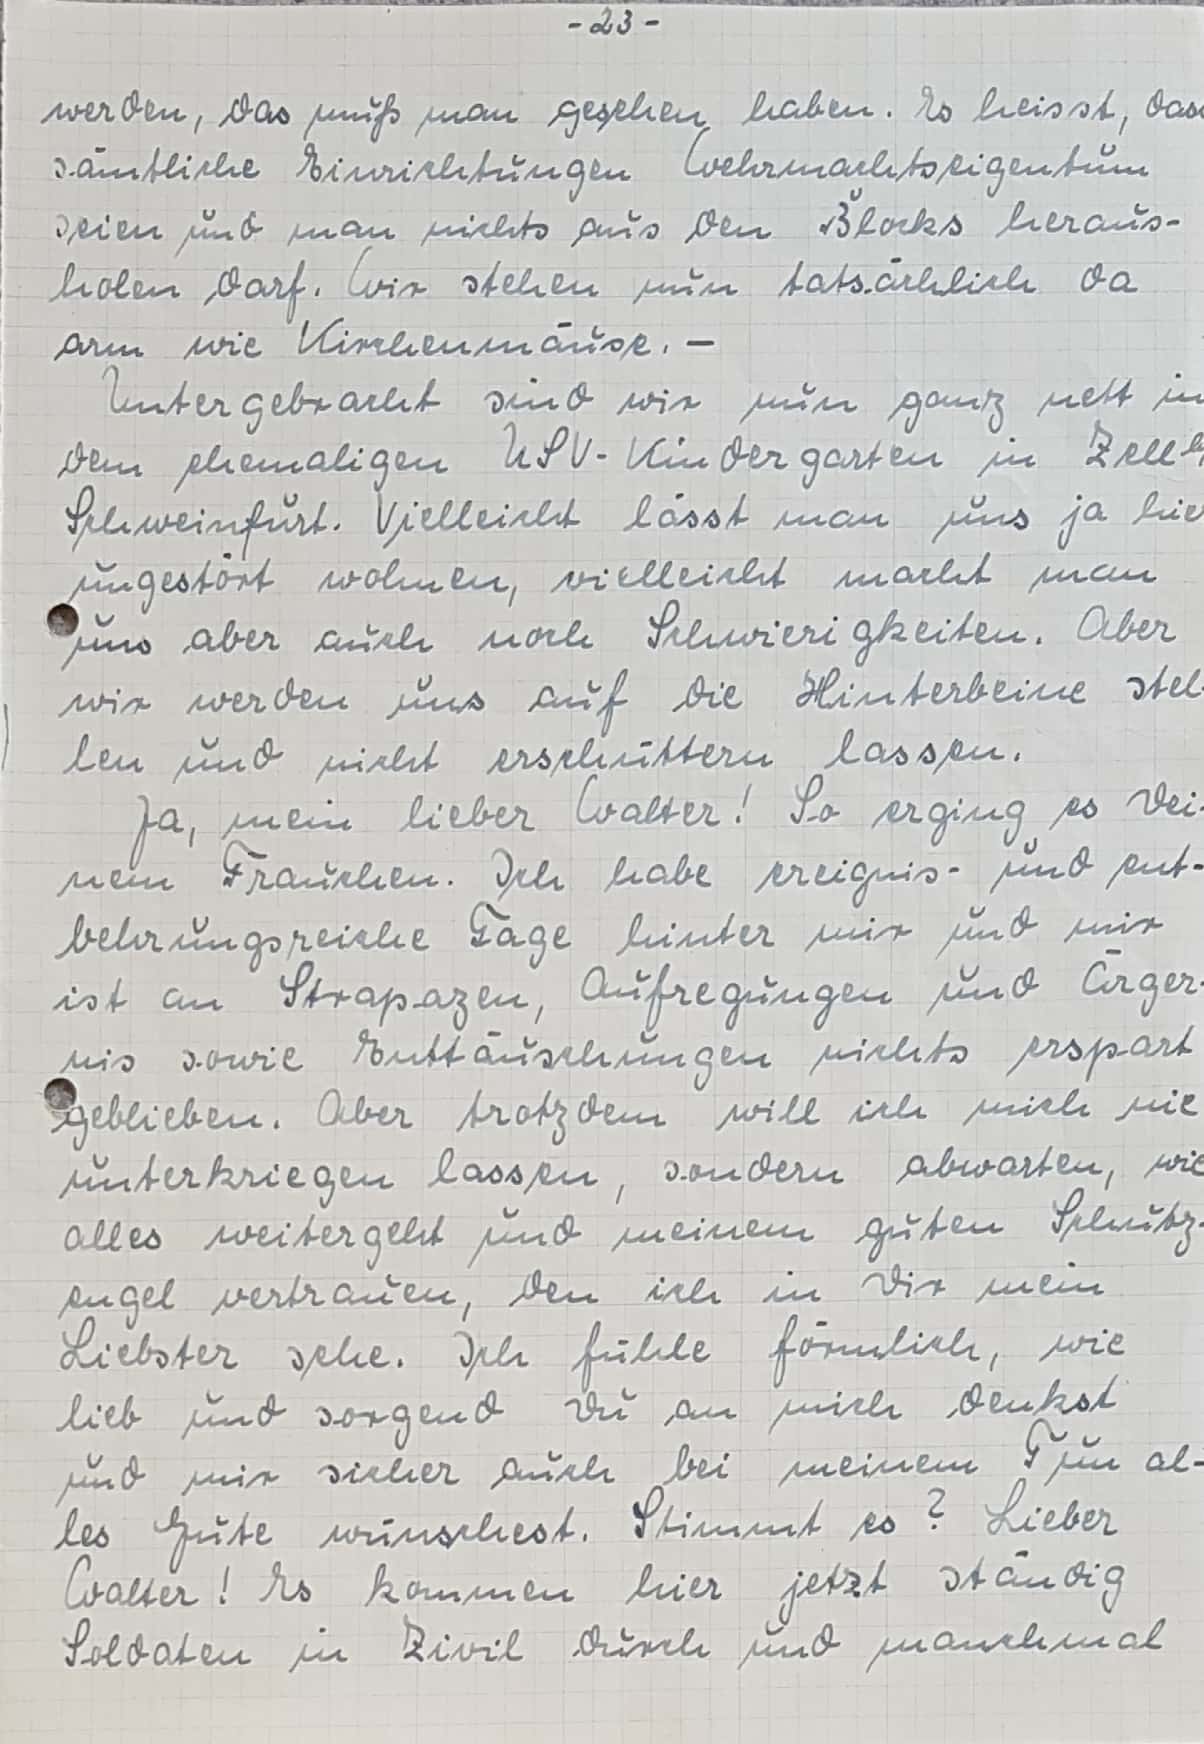 - 23 -
werden, das muß man gesehen haben. Es heisst, dass
sämtliche Einrichtungen Wehrmachtseigentum
seien und man nichts aus den Blocks heraus-
holen darf. Wir stehen nun tatsächlich da
arm wie Kirchenmäuse. —
Untergebracht sind wir nun ganz nett in
dem ehemaligen NSV-Kindergarten in Zell b/
Schweinfurt. Vielleicht lässt man uns ja hier
ungestört wohnen, vielleicht macht man
uns aber auch noch Schwierigkeiten. Aber
wir werden uns auf die Hinterbeine stel-
len und nicht erschüttern lassen.
Ja, mein lieber Walter! So erging es Dei-
nem Frauchen. Ich habe ereignis- und ent-
behrungsreiche Tage hinter mir und mir
ist an Strapazen, Aufregungen und Ärger-
nis sowie Enttäuschungen nichts erspart
geblieben. Aber trotzdem will ich mich nie
unterkriegen lassen, sondern abwarten, wie
alles weitergeht und meinem guten Schutz-
engel vertrauen, den ich in Dir mein
Liebster sehe. Ich fühle förmlich, wie
lieb und sorgend Du an mich denkst
und mir sicher auch bei meinem Tun al-
les Gute wünschest. Stimmt es? Lieber
Walter! Es kommen hier jetzt ständig
Soldaten in Zivil durch und manchmal